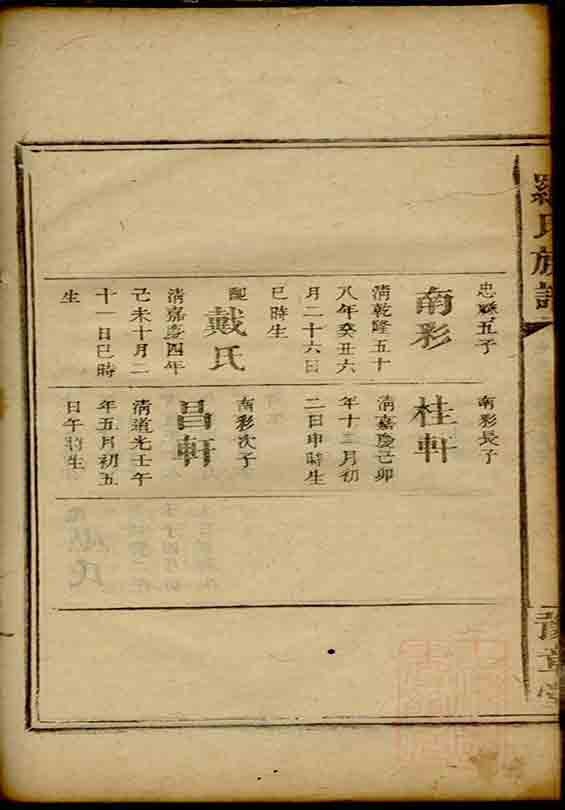 羅氏族譜
忠縣五子
南彩
清乾隆五十
八年癸丑六
月二十六日
巳時生
配
戴氏
清嘉慶四年
己未十月二
十一日巳時
生
南彩長子
桂軒
清嘉慶己卯
年十二月初
二日申時生
南彩次子
昌軒
清道光壬午
年五月初五
日午時生
豫章堂